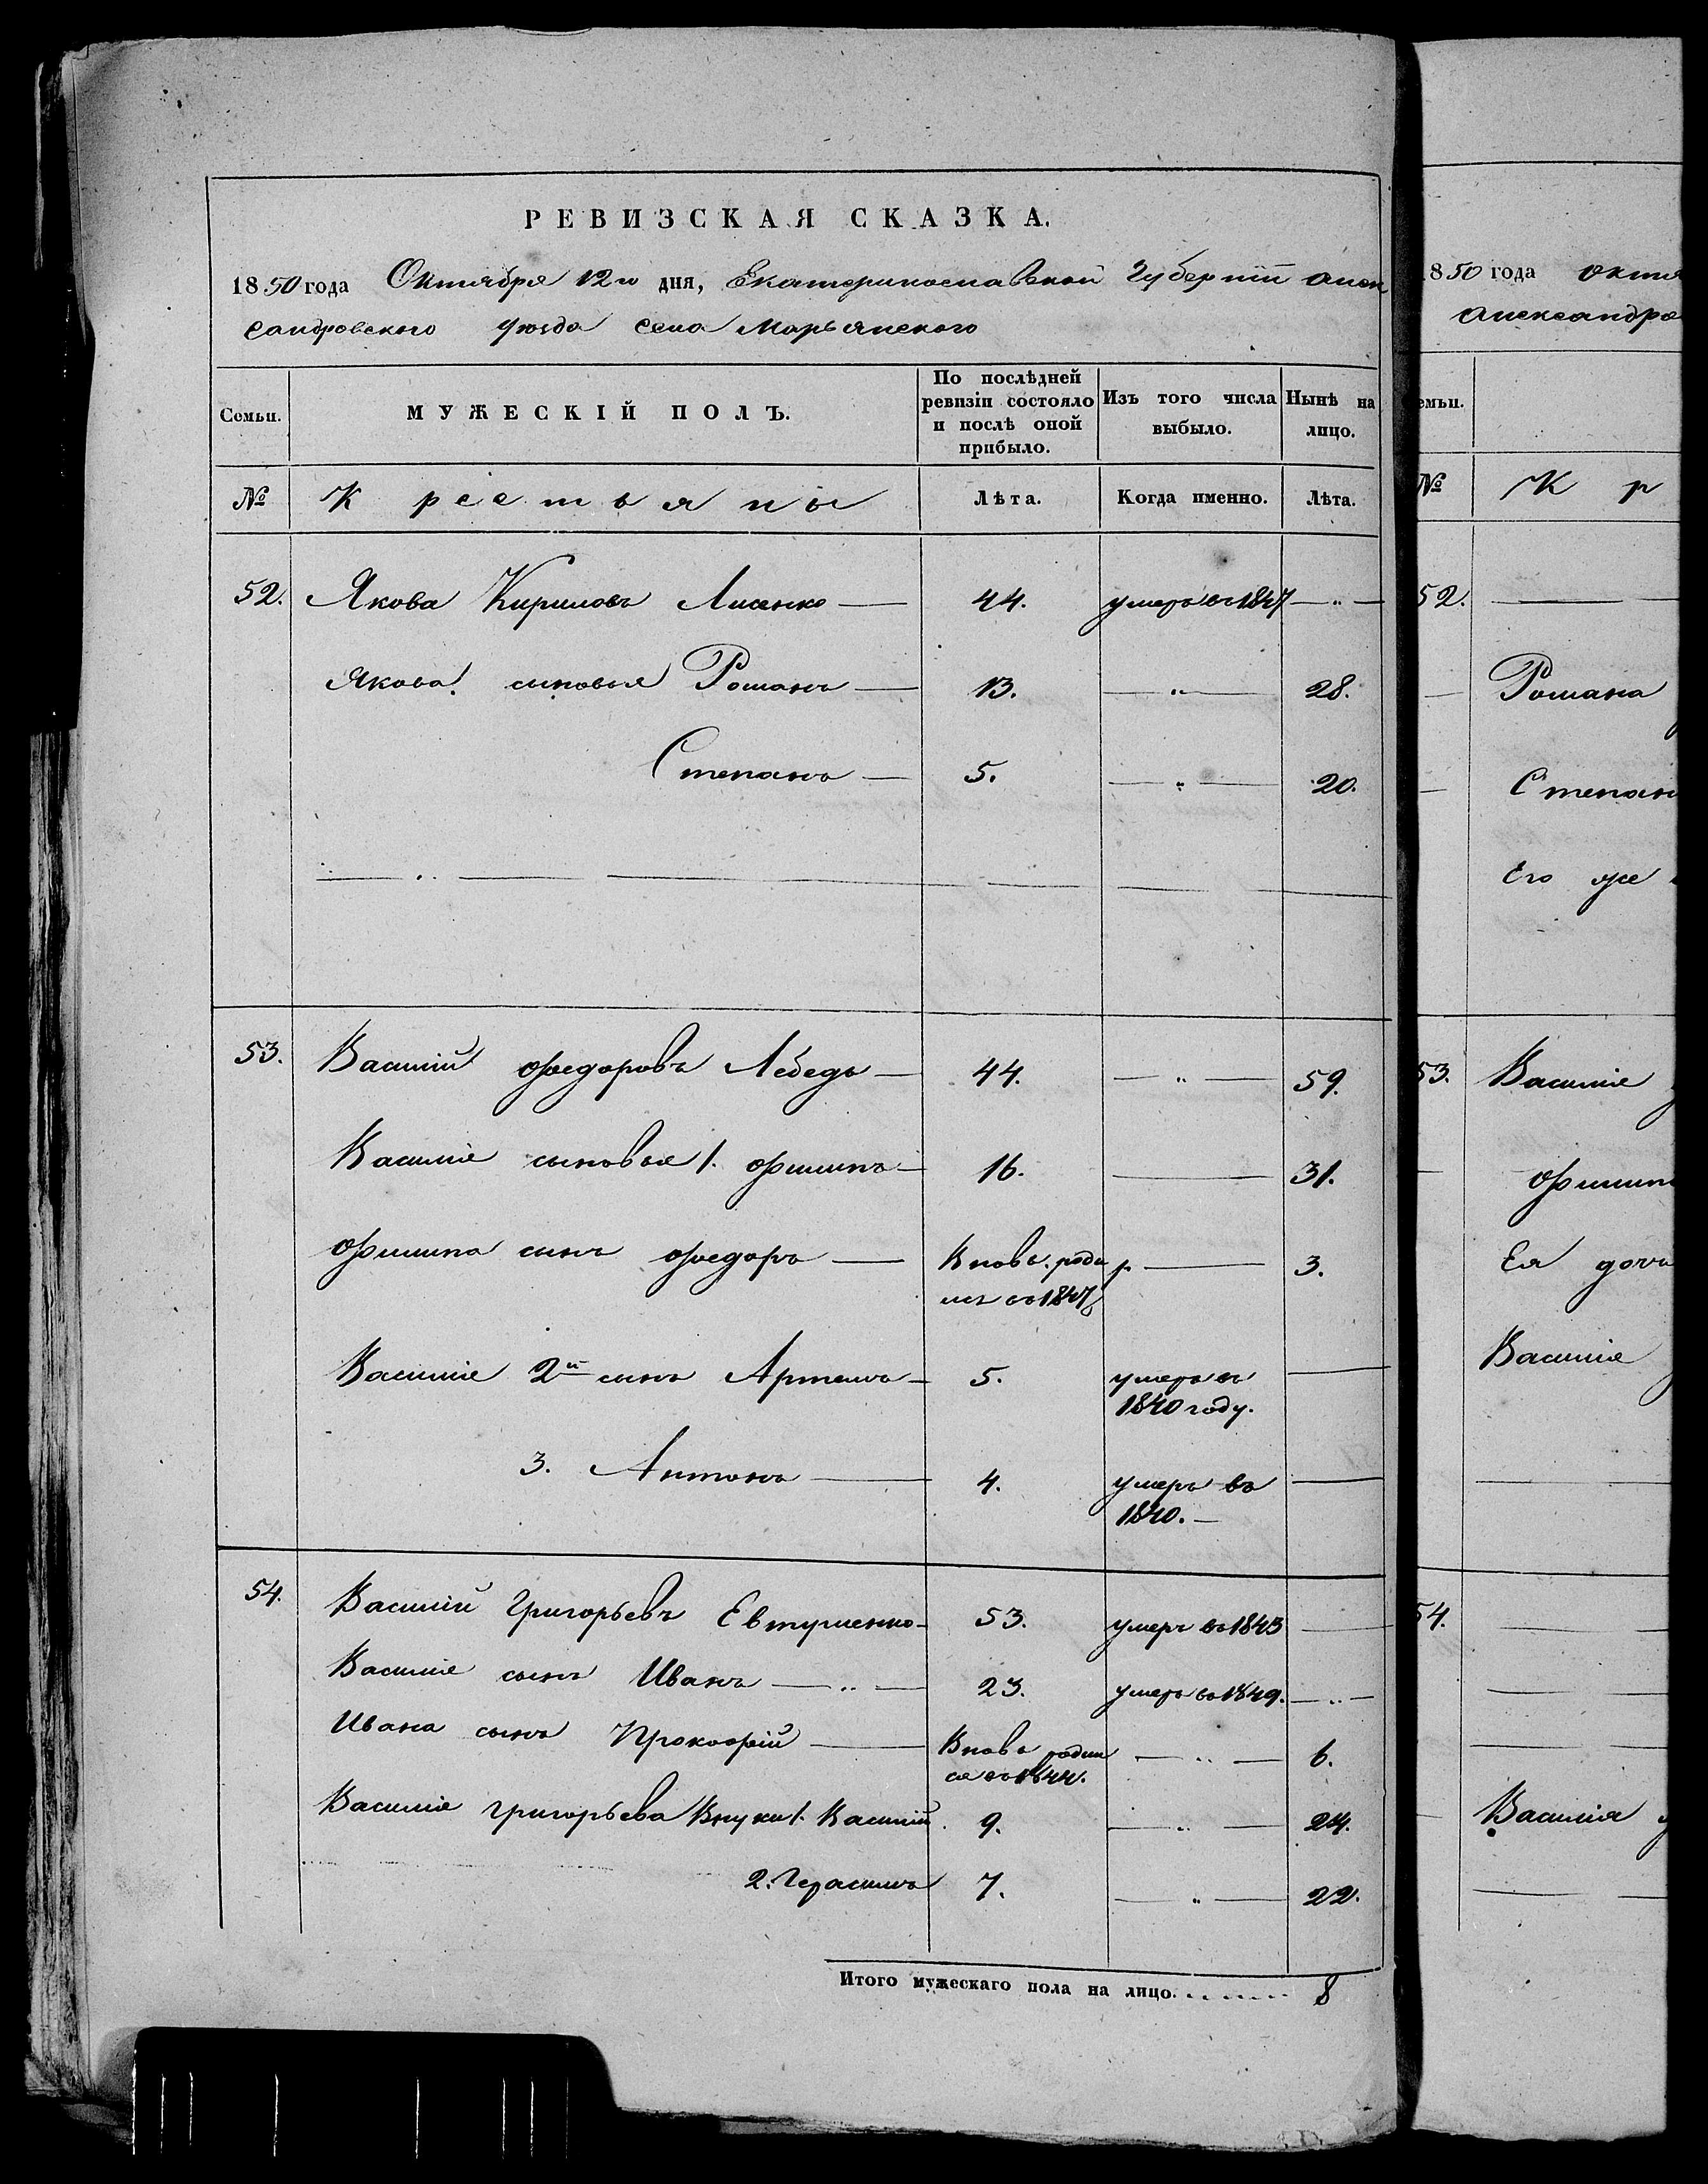 РЕВИЗСКАЯ СКАЗКА.
1850 года Октября 12го дня, Екатеринославской Губерніи Алек
сандровского уезда села Марьянского
Семьи. МУЖЕСКІЙ ПОЛЪ. По послѣдней ревизіи состояло и послѣ оной прибыло. Изъ того числа выбыло. Нынѣ на лицо.
№ Крестьяны Лѣта. Когда именно. Лѣта.
52. Якова Кириловъ Лисенко — 44. умеръ въ 1847 — „ —
Якова. сыновья Романъ — 13. — „ — 28.
Степанъ — 5. — „ — 20.
53. Василій Федоровъ Лебедь — 44. — „ — 59.
Василіе сыновья 1. Филипъ — 16. — 31.
Филипа сынъ Федоръ — Вновь. роди — 3.
лсь въ 1847
Василіе 2й сынъ Артемъ — 5. умеръ въ —
1840 году.
3. Антонъ — 4. умеръ въ —
1840. —
54. Василій Григорьевъ Евтушенко — 53. умеръ въ 1843 —
Василіе сынъ Иванъ — „ — 23. умеръ въ 1849. — „ —
Ивана сынъ Прокофій — Вновь родил — „ — 6.
ся въ 1844.
Василіе Григорьева Внуки 1. Василій. 9. — „ — 24.
2. Герасимъ 7. — „ — 22.
Итого мужескаго пола на лицо. . . . . . . . 8
1850 года Октя
Александро
емьи.
№ К р
52. —
— Романа
— Степан
Его же
53. Василіе
— Филип
Ея дочь
Василіе
54. —
— Василія